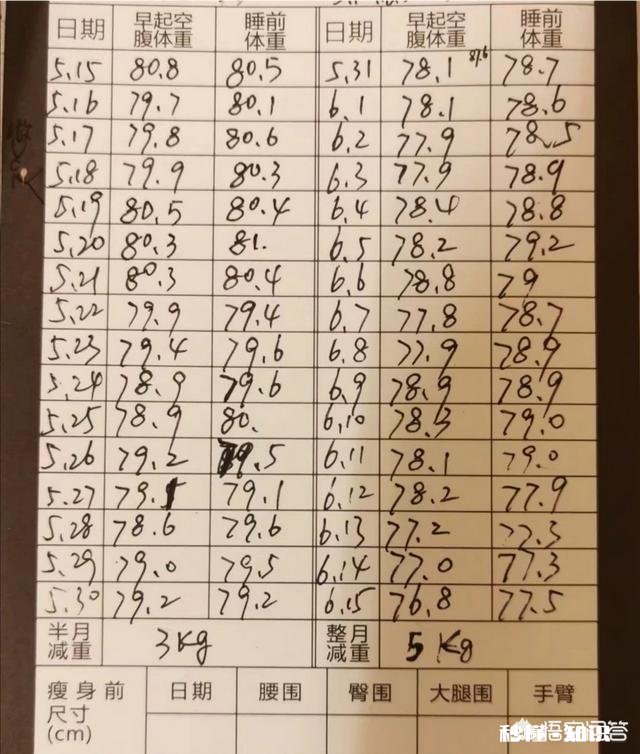 日期 早起空腹体重 睡前体重 日期 早起空腹体重 睡前体重
5.15 80.8 80.5 5.31 78.1 78.7
5.16 79.7 80.1 6.1 78.1 78.6
5.17 79.8 80.6 6.2 77.9 78.5
5.18 79.9 80.3 6.3 77.9 78.9
5.19 80.5 80.4 6.4 78.4 78.8
5.20 80.3 81. 6.5 78.2 79.2
5.21 80.3 80.4 6.6 78.8 79
5.22 79.9 79.4 6.7 77.8 78.7
5.23 79.4 79.6 6.8 77.9 78.9
5.24 78.9 79.6 6.9 78.9 78.9
5.25 78.9 80. 6.10 78.3 79.0
5.26 79.2 79.5 6.11 78.1 79.0
5.27 79.1 79.1 6.12 78.2 77.9
5.28 78.6 79.6 6.13 77.2 77.3
5.29 79.0 79.5 6.14 77.0 77.3
5.30 79.2 79.2 6.15 76.8 77.5
半月减重 3Kg 整月减重 5Kg
瘦身前尺寸(cm) 日期 腰围 臀围 大腿围 手臂
悟空问答